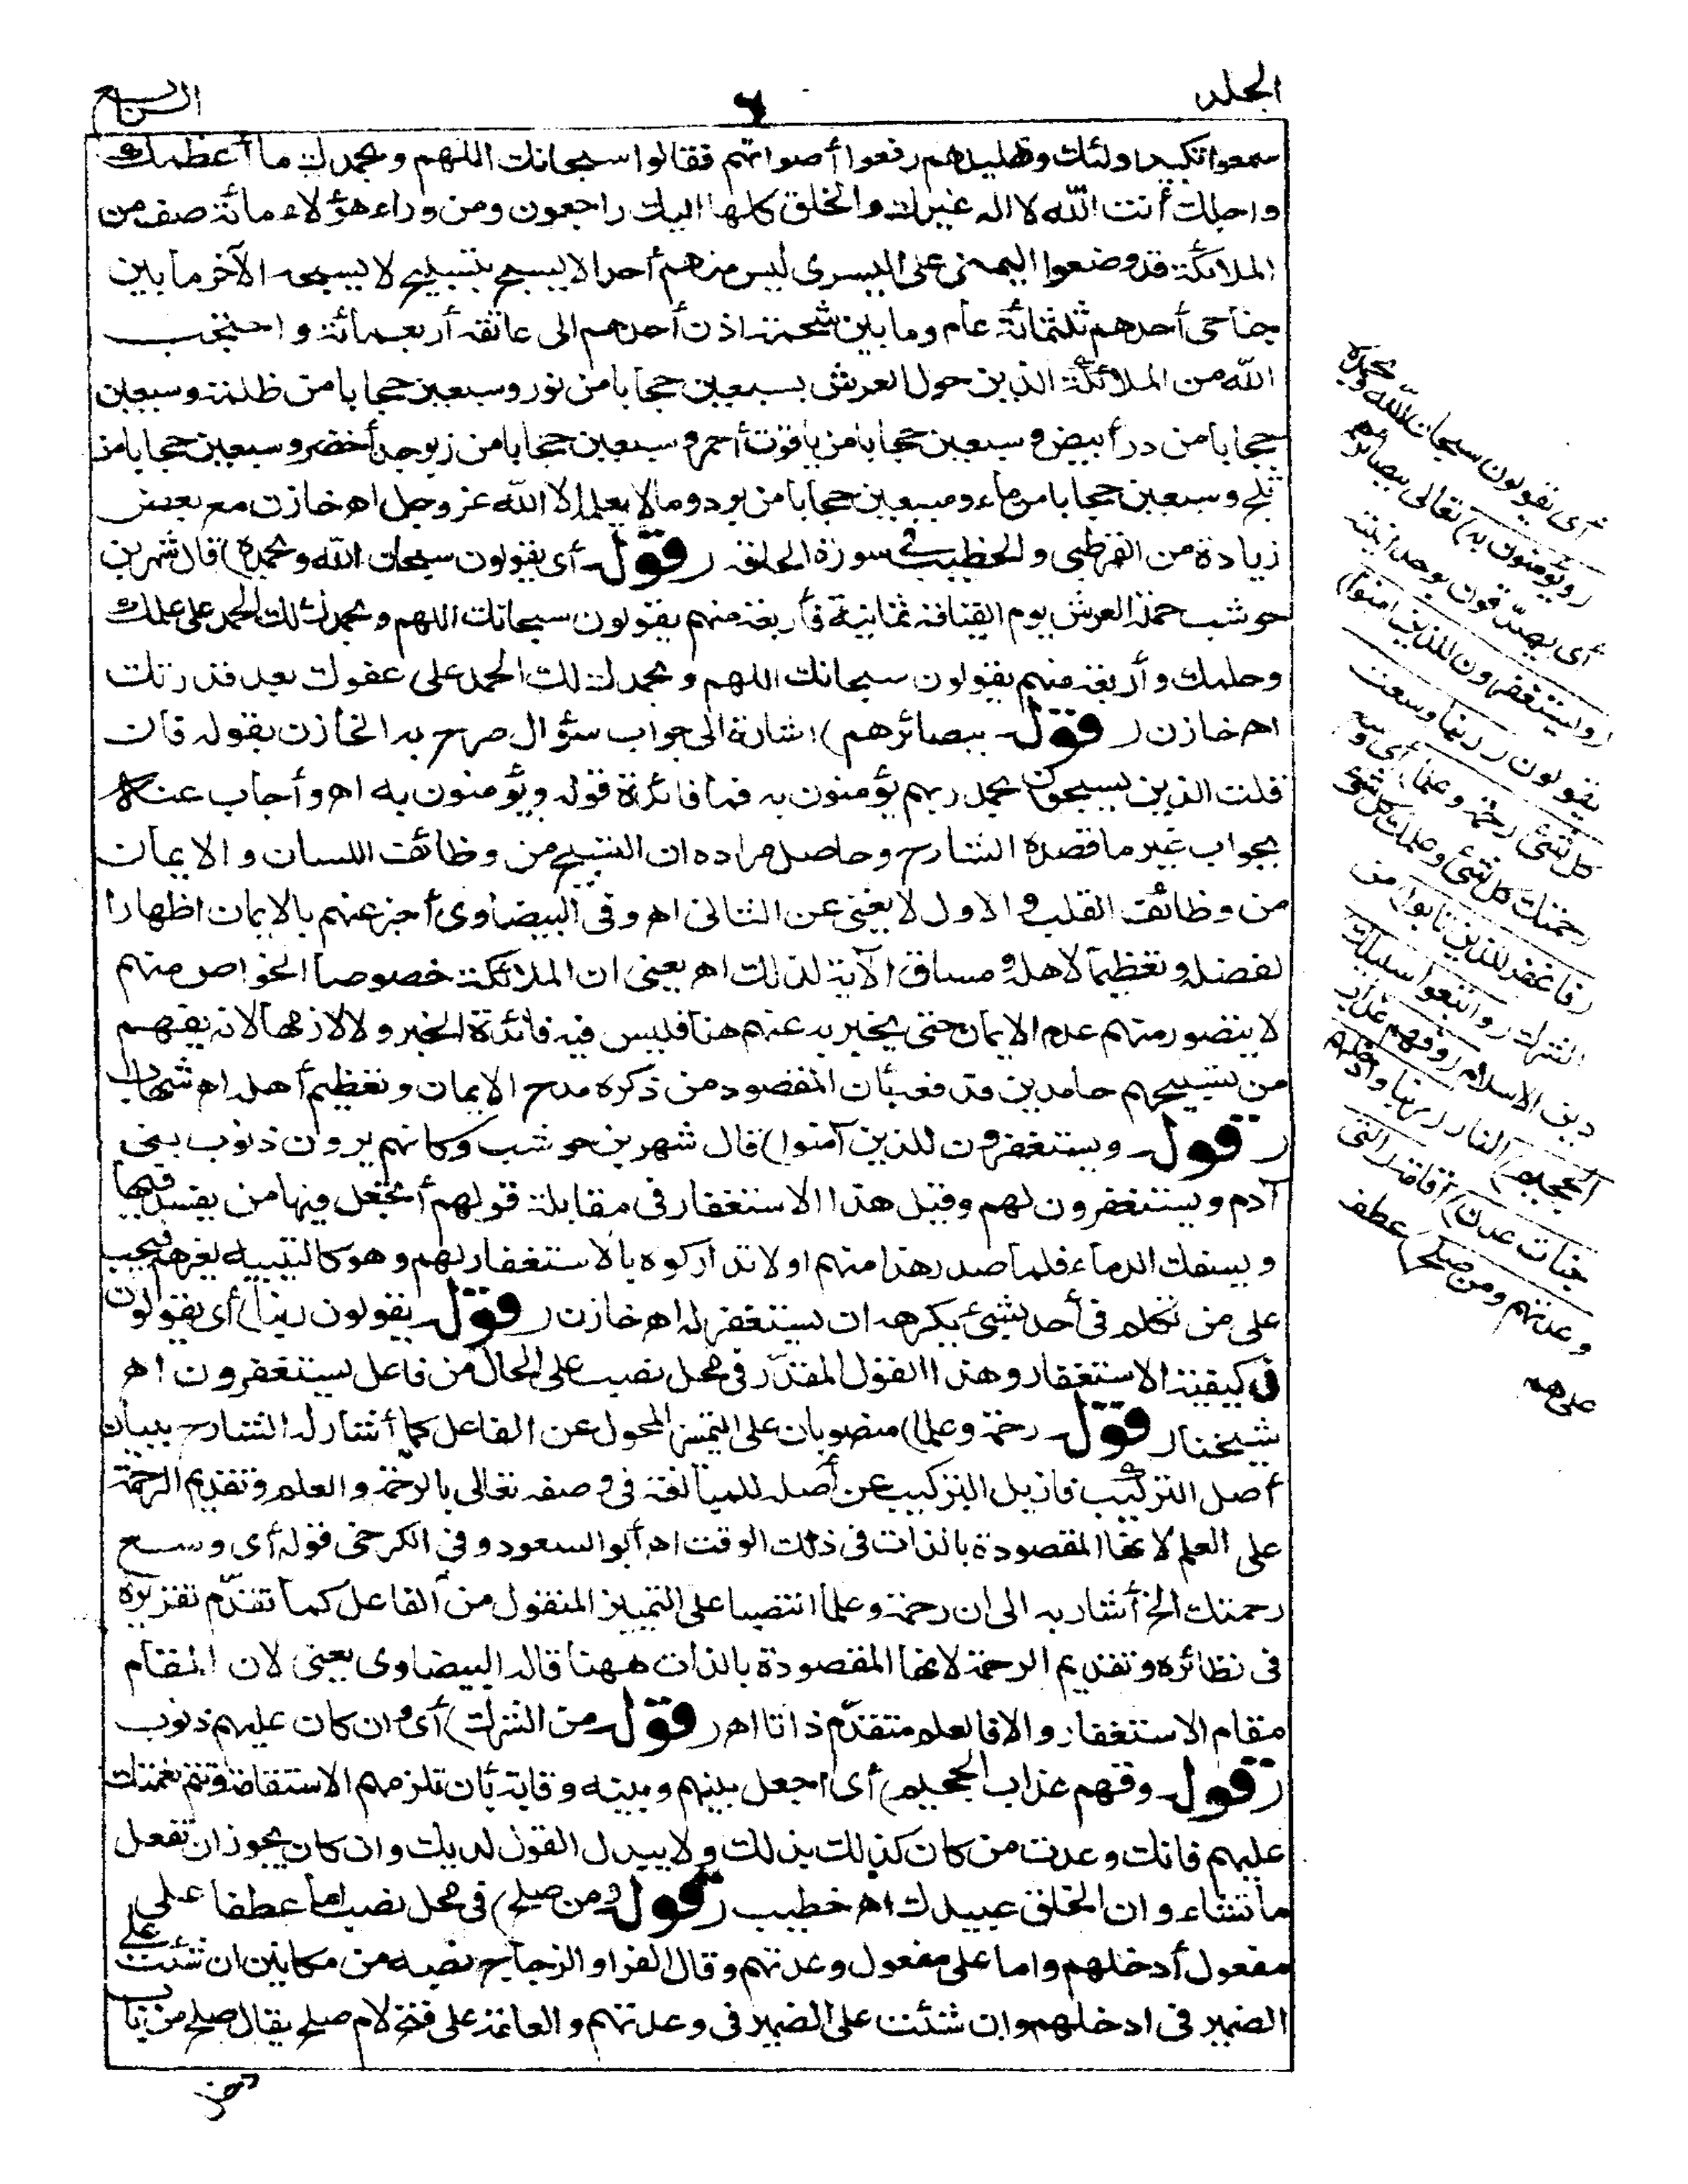 الجلد
٦
الرابع
سمعوا تكبير اولئك وتهليلهم رفعوا أصواتهم فقالوا سبحانك اللهم وبحمدك ما أعظمك
واجلك أنت الله لا اله غيرك والخلق كلها اليك راجعون ومن وراء هؤلاء مائة صف من
الملائكة قد وضعوا اليمنى على اليسرى ليس منهم أحد الا يسبح بتسبيح لا يسبحه الآخر ما بين
جناحي أحدهم ثلثمائة عام وما بين شحمة اذن أحدهم الى عاتقه أربعمائة واحتجب
الله من الملائكة الذين حول العرش بسبعين حجابا من نور وسبعين حجابا من ظلمة وسبعين
حجابا من در أبيض وسبعين حجابا من ياقوت أحمر وسبعين حجابا من زبرجد أخضر وسبعين حجابا من
ثلج وسبعين حجابا من ماء وسبعين حجابا من برد وما لا يعلمه الا الله عز وجل اهـ خازن مع بعض
زيادة من القرطبي والخطيب في سورة الحاقة (قوله أي يقولون سبحان الله وبحمده) قال شهر بن
حوشب حملة العرش يوم القيامة ثمانية فأربعة منهم يقولون سبحانك اللهم وبحمدك لك الحمد على علمك
وحلمك وأربعة منهم يقولون سبحانك اللهم وبحمدك لك الحمد على عفوك بعد قدرتك
اهـ خازن (قوله ببصائرهم) اشارة الى جواب سؤال صرح به الخازن بقوله فان
قلت الذين يسبحون بحمد ربهم يؤمنون به فما فائدة قوله ويؤمنون به اهـ وأجاب عنه
بجواب غير ما قصده الشارح وحاصل مراده ان التسبيح من وظائف اللسان والايمان
من وظائف القلب والاول لا يغني عن الثاني اهـ وفي البيضاوى أخبر عنهم بالايمان اظهارا
لفضله وتعظيما لاهله ومساق الآية لذلك اهـ يعني ان الملائكة خصوصا الخواص منهم
لا يتصور منهم عدم الايمان حتى يخبر به عنهم هنا فليس فيه فائدة الخبر ولا لازمها لانه يفهم
من تسبيحهم حامدين فدفعه بأن المقصود من ذكره مدح الايمان وتعظيم أهله اهـ شهاب
(قوله ويستغفرون للذين آمنوا) قال شهر بن حوشب وكانهم يرون ذنوب بني
آدم ويستغفرون لهم وقيل هذا الاستغفار في مقابلة قولهم أتجعل فيها من يفسد فيها
ويسفك الدماء فلما صدر هذا منهم اولا تداركوه بالاستغفار لهم وهو كالتنبيه لغيرهم فيجب
على من تكلم في أحد بشيئ يكرهه ان يستغفر له اهـ خازن (قوله يقولون ربنا) أي يقولون
في كيفية الاستغفار وهذا القول المقدّر في محل نصب على الحال من فاعل يستغفرون اهـ
شيخنا (قوله رحمة وعلما) منصوبان على التمييز المحول عن الفاعل كما أشار له الشارح ببيان
أصل التركيب فازيل التركيب عن أصله للمبالغة في وصفه تعالى بالرحمة والعلم وتقديم الرحمة
على العلم لانها المقصودة بالذات في ذلك الوقت اهـ أبو السعود وفي الكرخي قوله أي وسع
رحمتك الخ أشار به الى ان رحمة وعلما انتصبا على التمييز المنقول من الفاعل كما تقدّم تقريره
في نظائره وتقديم الرحمة لانها المقصودة بالذات ههنا قاله البيضاوى يعني لان المقام
مقام الاستغفار والا فالعلم متقدّم ذاتا اهـ (قوله من الشرك) أي وان كان عليهم ذنوب
(قوله وقهم عذاب الجحيم) أي اجعل بينهم وبينه وقاية بأن تلزمهم الاستقامة وتتم نعمتك
عليهم فانك وعدت من كان كذلك بذلك ولا يبدل القول لديك وان كان يجوز ان تفعل
ما تشاء وان الخلق عبيدك اهـ خطيب (قوله ومن صلح) في محل نصب اما عطفا على
مفعول أدخلهم واما على مفعول وعدتهم وقال الفرا والزجاج نصبه من مكانين ان شئت على
الضمير في ادخلهم وان شئت على الضمير في وعدتهم والعامة على فتح لام صلح يقال صلح من باب
أي يقولون سبحان الله وبحمده
(ويؤمنون به) تعالى ببصائرهم
أي يصدّقون بوحدانيته
(ويستغفرون للذين امنوا)
يقولون (ربنا وسعت
كل شئ رحمة وعلما) أي وسع
رحمتك كل شئ وعلمك كل شئ
(فاغفر للذين تابوا) من
الشرك (واتبعوا سبيلك)
دين الاسلام (وقهم عذاب
الجحيم) النار (ربنا وادخلهم
جنات عدن) اقامة (التي
وعدتهم ومن صلح) عطف
على هم